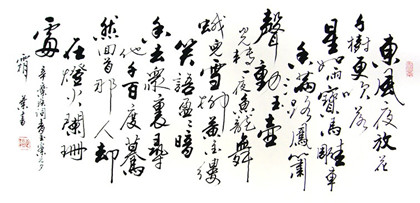 東風夜放花
千樹更吹落
星如雨寶馬雕車
香滿路鳳簫
聲動玉壺
光轉一夜魚龍舞
蛾兒雪柳黃金縷
笑語盈盈暗
香去眾裏尋
他千百度驀
然回首那人却
在燈火闌珊
處
辛棄疾詞青玉案元夕